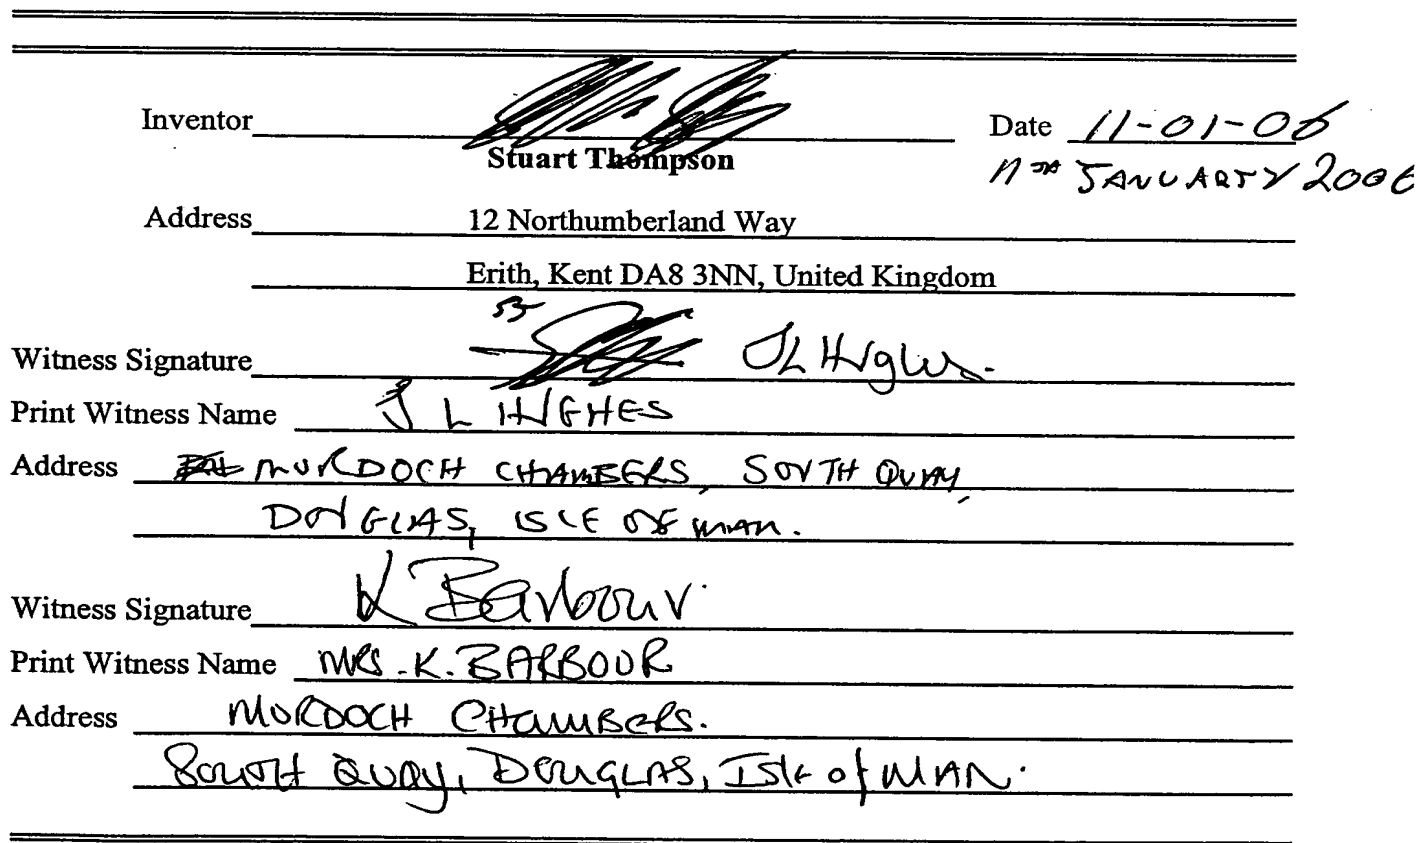 Inventor Date 11-01-06
Stuart Thompson
11TH JANUARY 2006
Address 12 Northumberland Way
Erith, Kent DA8 3NN, United Kingdom
Witness Signature JL Hughes.
Print Witness Name J L HUGHES
Address MURDOCH CHAMBERS, SOUTH QUAY,
DOUGLAS, ISLE OF MAN.
Witness Signature K Barbour
Print Witness Name MRS. K. BARBOUR
Address MURDOCH CHAMBERS.
SOUTH QUAY, DOUGLAS, ISLE of MAN.